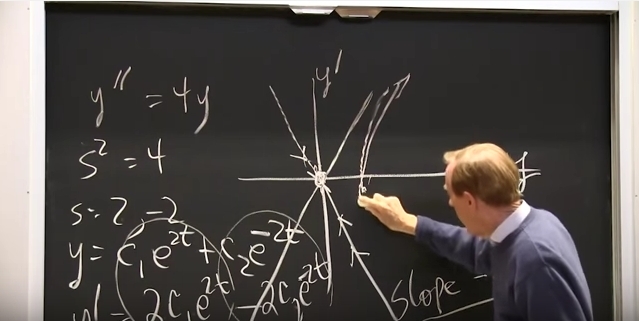 y'' = 4y
s² = 4
s = 2 -2
y = c₁e^2t + c₂e^-2t
y' = 2c₁e^2t - 2c₂e^2t
y'
y
Slope =